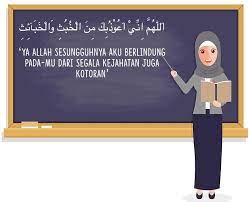 اَللّٰهُمَّ اِنِّيْ اَعُوْذُبِكَ مِنَ الْخُبُثِ وَالْخَبَائِثِ
'YA ALLAH SESUNGGUHNYA AKU BERLINDUNG
PADA-MU DARI SEGALA KEJAHATAN JUGA
KOTORAN'